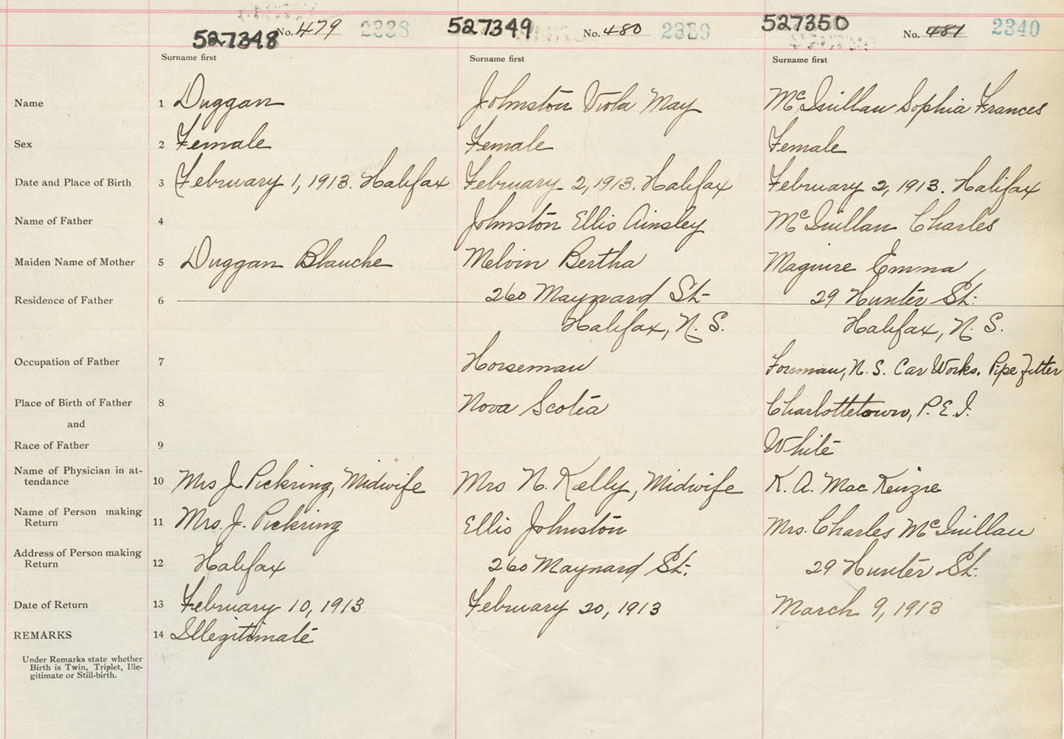 527348 No. 479 2338 527349 No. 480 2339 527350 No. 481 2340
Surname first Surname first Surname first
Name 1 Duggan Johnston Viola May McQuillan Sophia Frances
Sex 2 Female Female Female
Date and Place of Birth 3 February 1, 1913. Halifax February 2, 1913. Halifax February 2, 1913. Halifax
Name of Father 4 Johnston Ellis Ainsley McQuillan Charles
Maiden Name of Mother 5 Duggan Blauche Melvin Bertha Maguire Emma
Residence of Father 6 260 Maynard St. 29 Hunter St.
Halifax, N.S. Halifax, N.S.
Occupation of Father 7 Horseman Foreman, N.S. Car Works. Pipe Fitter
Place of Birth of Father 8 Nova Scotia Charlottetown, P.E.I.
and
Race of Father 9 White
Name of Physician in at-
tendance 10 Mrs J Pickring, Midwife Mrs N. Kelly, Midwife K. A. MacKenzie
Name of Person making
Return 11 Mrs. J. Pickring Ellis Johnston Mrs. Charles McQuillan
Address of Person making
Return 12 Halifax 260 Maynard St. 29 Hunter St.
Date of Return 13 February 10, 1913 February 20, 1913 March 9, 1913
REMARKS 14 Illegitimate
Under Remarks state whether
Birth is Twin, Triplet, Ille-
gitimate or Still-birth.